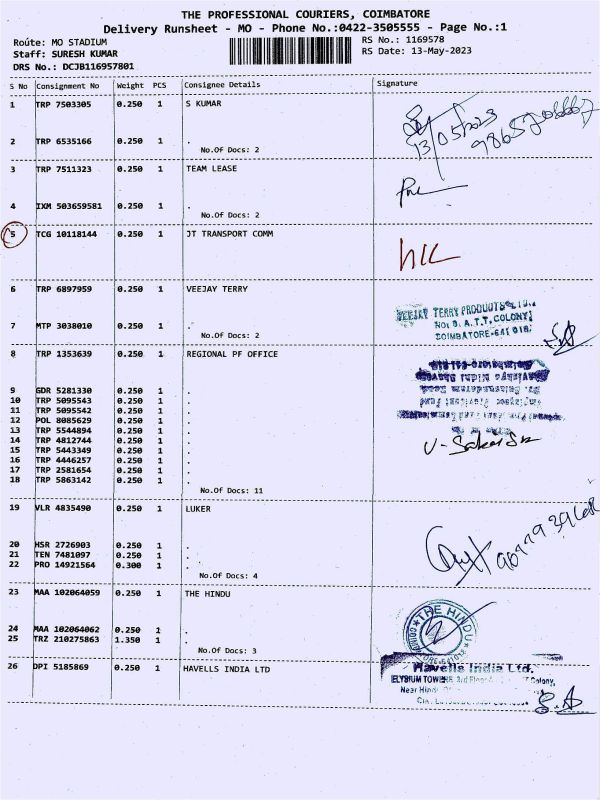 THE PROFESSIONAL COURIERS, COIMBATORE
Delivery Runsheet - MO - Phone No.:0422-3505555 - Page No.:1
Route: MO STADIUM
RS No.: 1169578
Staff: SURESH KUMAR
RS Date: 13-May-2023
DRS No.: DCJB116957801
S No Consignment No Weight PCS Consignee Details Signature
1 TRP 7503305 0.250 1 S KUMAR
13/05/2023
2 TRP 6535166 0.250 1 .
No.Of Docs: 2
3 TRP 7511323 0.250 1 TEAM LEASE
4 IXM 503659581 0.250 1 .
No.Of Docs: 2
5 TCG 10118144 0.250 1 JT TRANSPORT COMM
6 TRP 6897959 0.250 1 VEEJAY TERRY
VEEJAY TERRY PRODUCTS LTD.,
No: 9. A.T.T. COLONY,
COIMBATORE-641 018.
7 MTP 3038010 0.250 1 .
No.Of Docs: 2
8 TRP 1353639 0.250 1 REGIONAL PF OFFICE
9 GDR 5281330 0.250 1 .
10 TRP 5095543 0.250 1 .
11 TRP 5095542 0.250 1 .
12 POL 8085629 0.250 1 .
13 TRP 5544894 0.250 1 .
14 TRP 4812744 0.250 1 .
15 TRP 5443349 0.250 1 .
16 TRP 4446257 0.250 1 .
17 TRP 2581654 0.250 1 .
18 TRP 5863142 0.250 1 .
No.Of Docs: 11
19 VLR 4835490 0.250 1 LUKER
20 HSR 2726903 0.250 1 .
21 TEN 7481097 0.250 1 .
22 PRO 14921564 0.300 1 .
No.Of Docs: 4
23 MAA 102064059 0.250 1 THE HINDU
THE HINDU
24 MAA 102064062 0.250 1 .
25 TRZ 210275863 1.350 1 .
No.Of Docs: 3
26 DPI 5185869 0.250 1 HAVELLS INDIA LTD
Havells India Ltd.
ELYSIUM TOWERS, 3rd Floor Colony,
Near Hindu